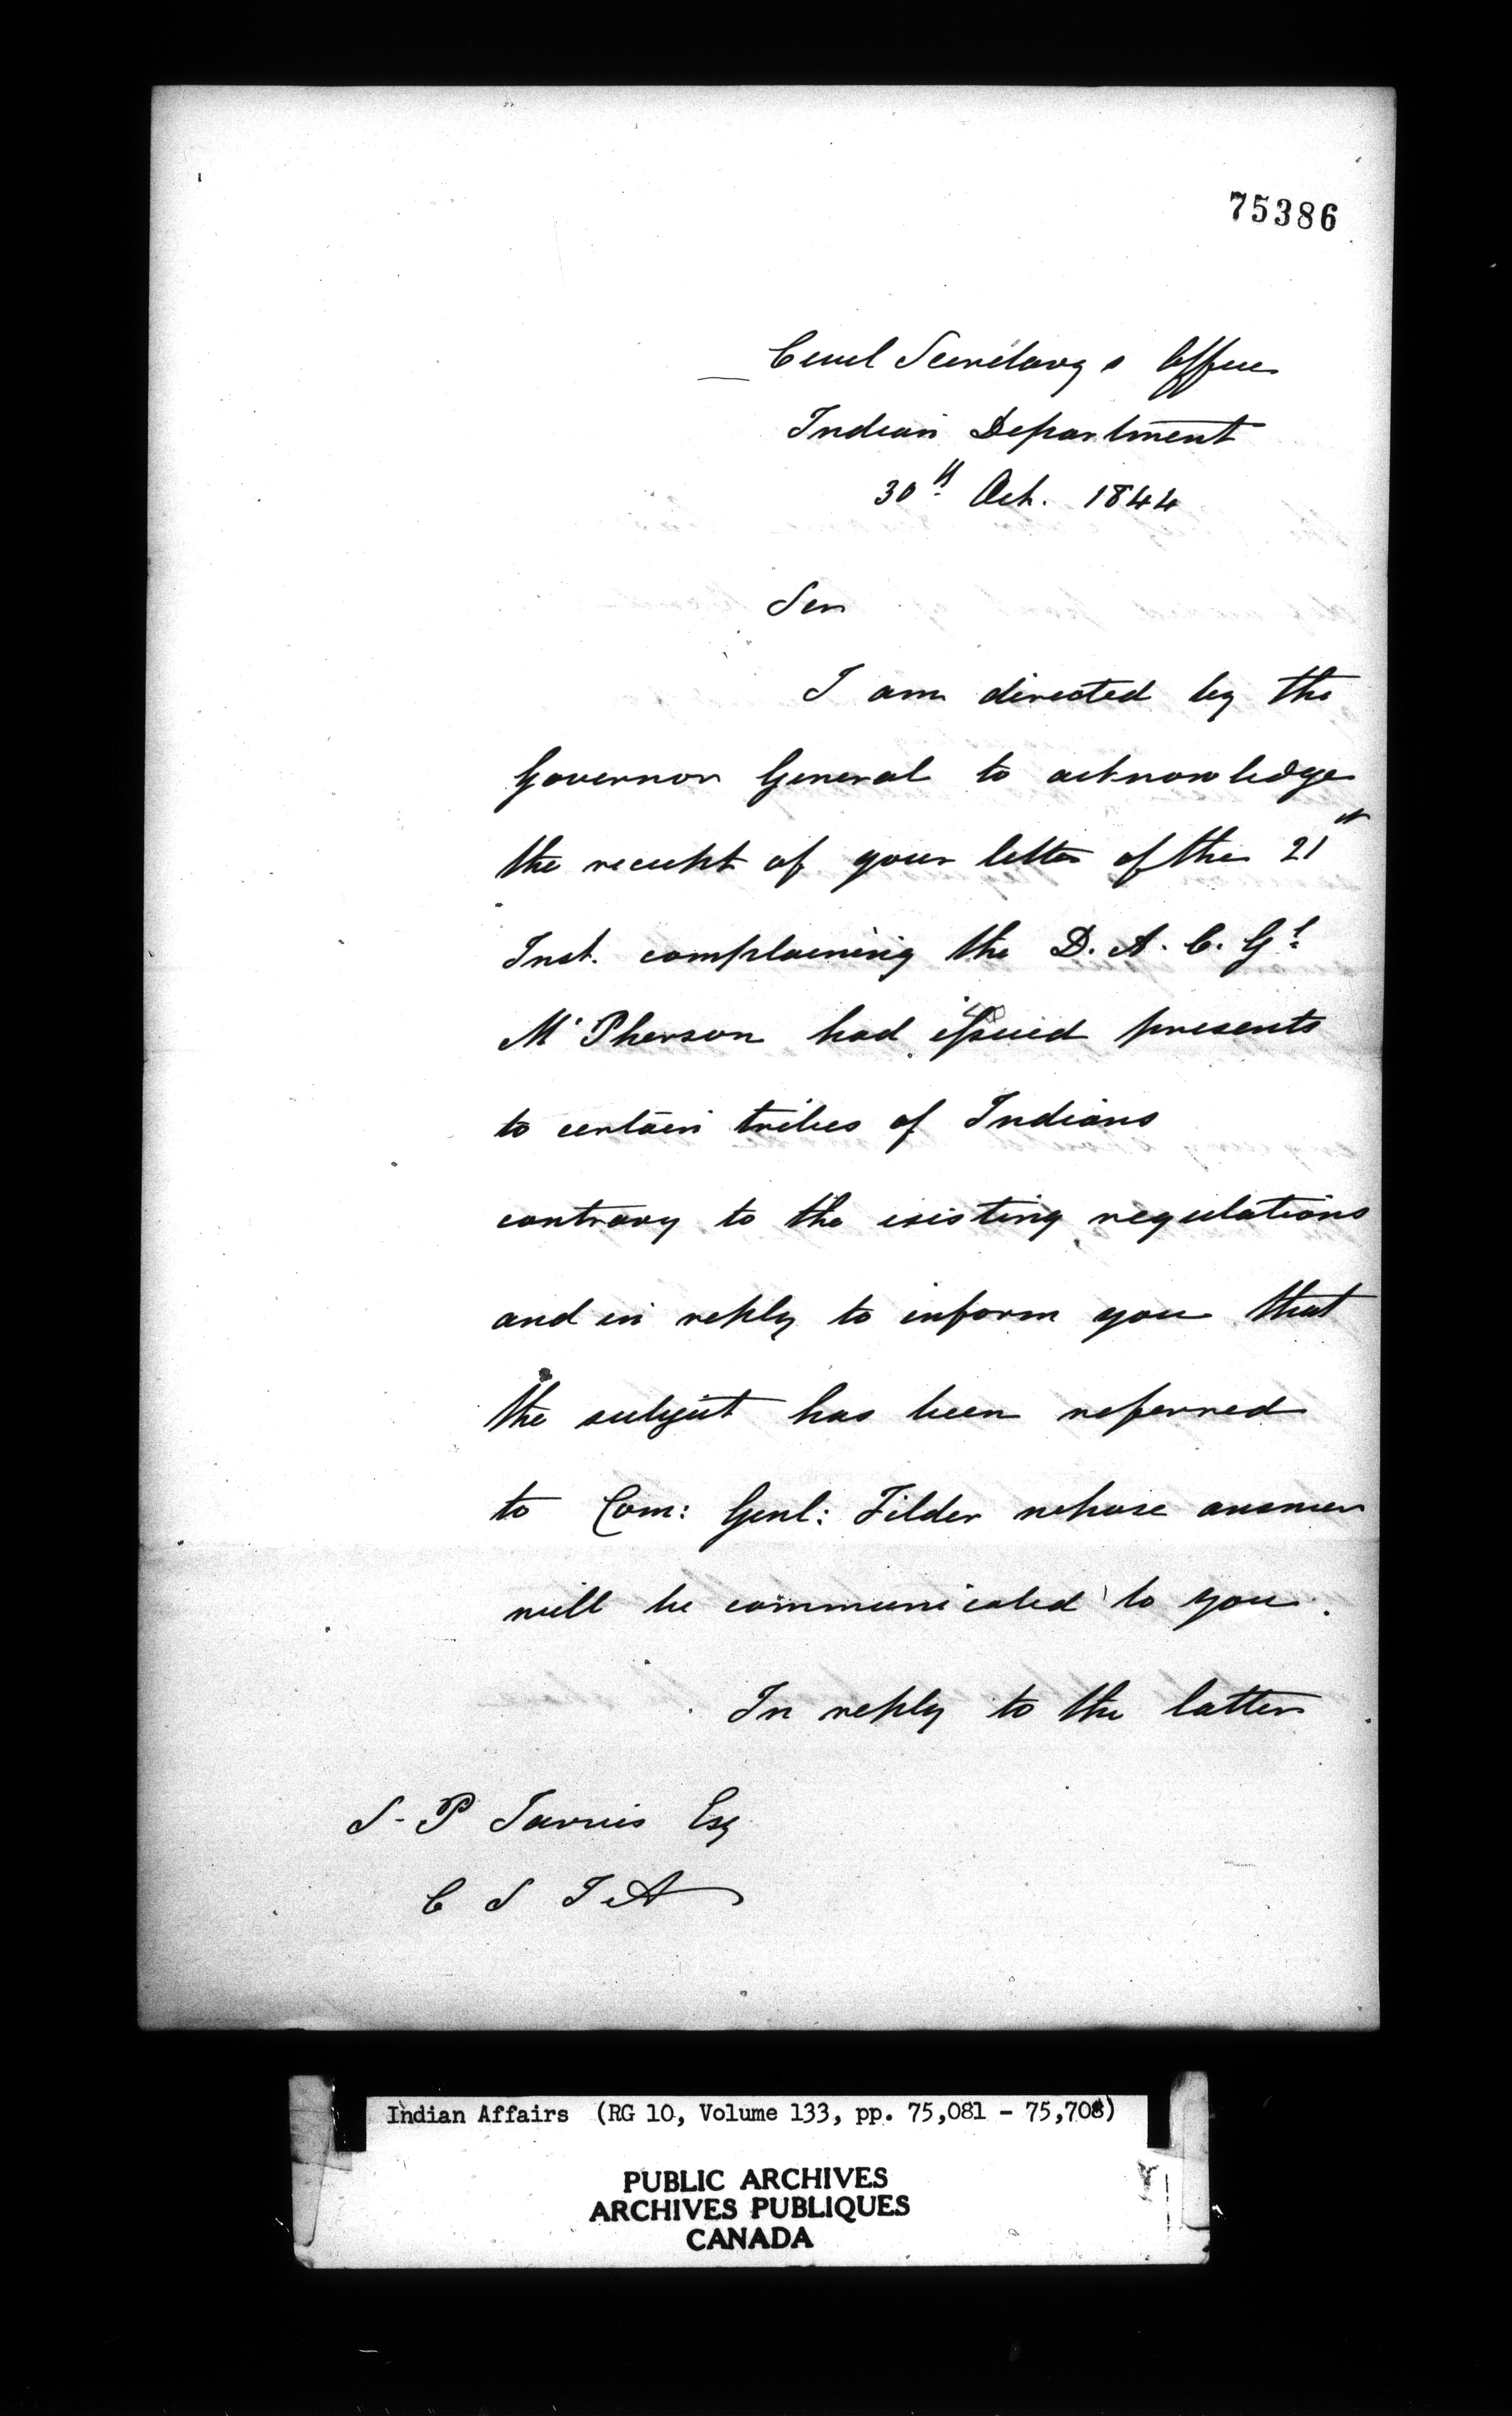 75386
Civil Secretary's Office
Indian Department
30th Oct. 1844
Sir
I am directed by the
Governor General to acknowledge
the receipt of your letter of the 21st
Inst. complaining the D. A. C. Gl.
McPherson had issued presents
to certain tribes of Indians
contrary to the existing regulations
and in reply to inform you that
the subject has been referred
to Com: Genl: Filder whose answer
will be communicated to you.
In reply to the latter
S. P Jarvis Esq
C S I A
Indian Affairs (RG 10, Volume 133, pp. 75,081 - 75,708)
PUBLIC ARCHIVES
ARCHIVES PUBLIQUES
CANADA